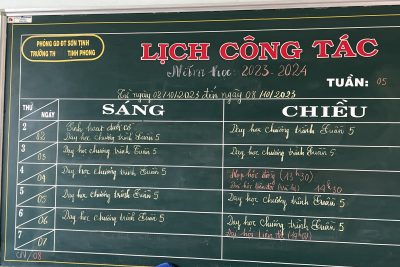 PHÒNG GD ĐT SƠN TỊNH
TRƯỜNG TH TỊNH PHONG
LỊCH CÔNG TÁC
Năm học: 2023-2024
TUẦN: 05
Từ ngày 02/10/2023 đến ngày 08/10/2023
THỨ NGÀY SÁNG CHIỀU
2 02 Sinh hoạt dưới cờ
Dạy học chương trình tuần 5 Dạy học chương trình tuần 5
3 03 Dạy học chương trình tuần 5 Dạy học chương trình tuần 5
4 04 Dạy học chương trình tuần 5 Họp hội đồng (13h30)
5 05 Dạy học chương trình tuần 5 Dạy học chương trình tuần 5
6 06 Dạy học chương trình tuần 5 Dạy học chương trình tuần 5
7 07
CN/08